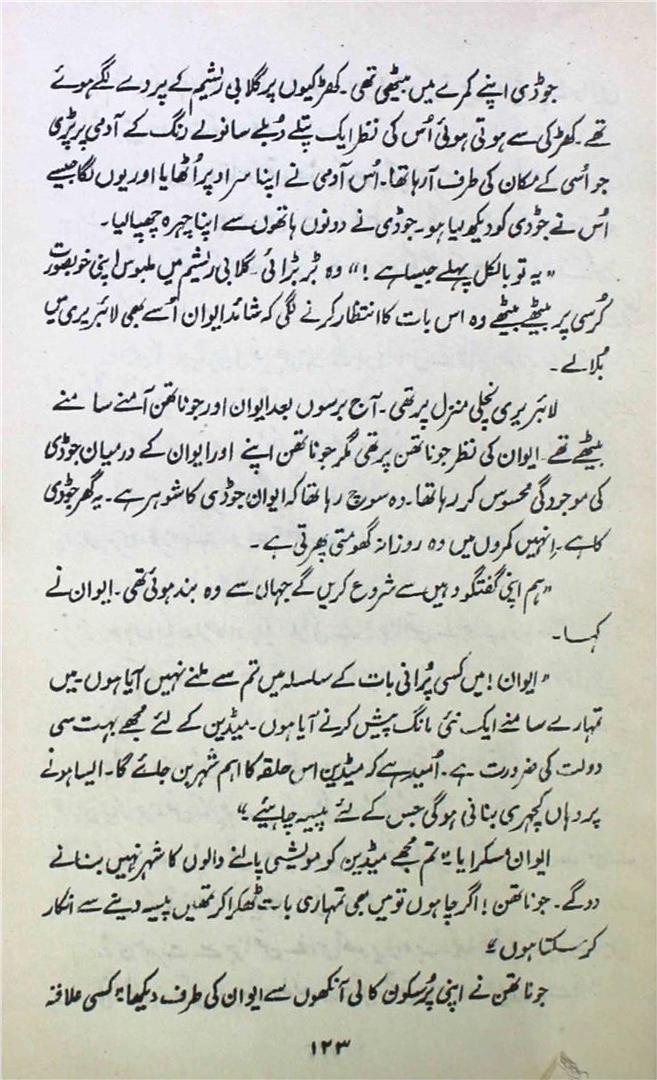 جوڈی اپنے کمرے میں بیٹھی تھی۔ کھڑکیوں پر گلابی ریشم کے پردے لگے ہوئے
تھے۔ کھڑکی سے ہوتی ہوئی اُس کی نظر ایک پتلے دُبلے سانولے رنگ کے آدمی پر پڑی
جو اُسی کے مکان کی طرف آ رہا تھا۔ اُس آدمی نے اپنا سر اوپر اُٹھایا اور یوں لگا جیسے
اُس نے جوڈی کو دیکھ لیا ہو۔ جوڈی نے دونوں ہاتھوں سے اپنا چہرہ چھپا لیا۔
"یہ تو بالکل پہلے جیسا ہے!" وہ بڑبڑائی۔ گلابی ریشم میں ملبوس اپنی خوبصورت
کُرسی پر بیٹھے بیٹھے وہ اس بات کا انتظار کرنے لگی کہ شائد ایوان اُسے بھی لائبریری میں
بُلائے۔
لائبریری نچلی منزل پر تھی۔ آج برسوں بعد ایوان اور جوناتھن آمنے سامنے
بیٹھے تھے۔ ایوان کی نظر جوناتھن پر تھی مگر جوناتھن اپنے اور ایوان کے درمیان جوڈی
کی موجودگی محسوس کر رہا تھا۔ وہ سوچ رہا تھا کہ ایوان جوڈی کا شوہر ہے۔ یہ گھر جوڈی
کا ہے۔ اِنہیں کمروں میں وہ روزانہ گھومتی پھرتی ہے۔
"ہم اپنی گفتگو وہیں سے شروع کریں گے جہاں سے وہ بند ہوئی تھی۔ ایوان نے
کہا۔
"ایوان! میں کسی پُرانی بات کے سلسلہ میں تم سے ملنے نہیں آیا ہوں۔ میں
تمہارے سامنے ایک نئی مانگ پیش کرنے آیا ہوں۔ میڈین کے لئے مجھے بہت سی
دولت کی ضرورت ہے۔ اُمید ہے کہ میڈین اس حلقہ کا اہم شہر بن جائے گا۔ ایسا ہونے
پر وہاں کچہری بنانی ہو گی جس کے لئے پیسہ چاہئیے۔"
ایوان مسکرایا "تم مجھے میڈین کو مویشی پالنے والوں کا شہر نہیں بنانے
دو گے۔ جوناتھن! اگر چاہوں تو میں بھی تمہاری بات ٹھکرا کر تمھیں پیسہ دینے سے انکار
کر سکتا ہوں"
جوناتھن نے اپنی پُر سکون کالی آنکھوں سے ایوان کی طرف دیکھا "کسی علاقہ
۱۲۳